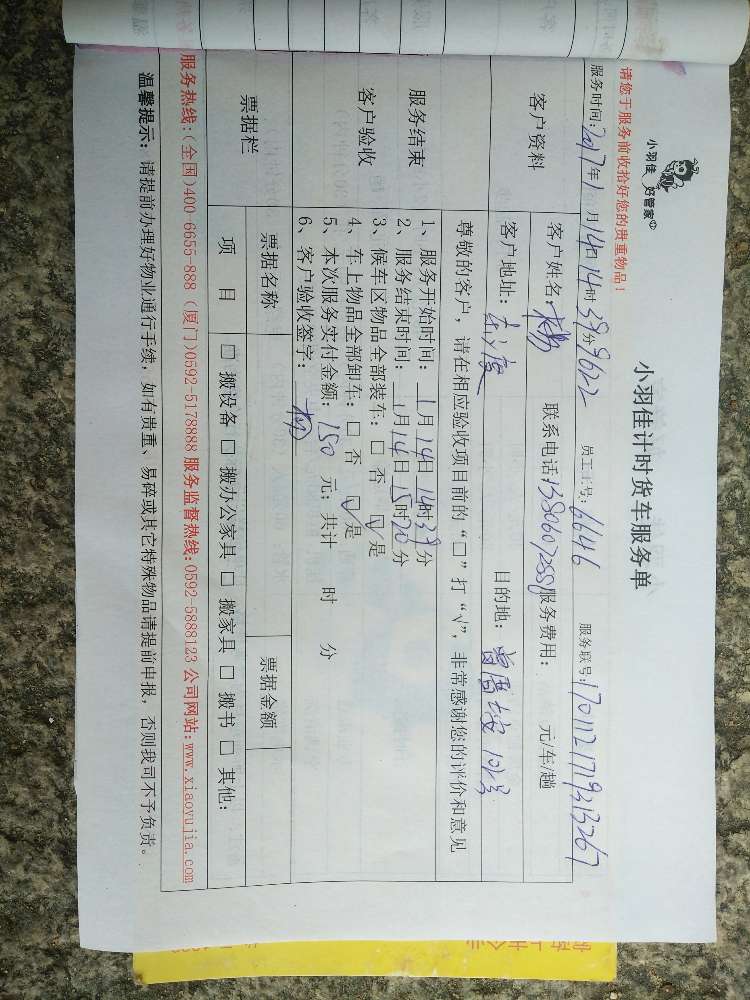 小羽佳 好管家
小羽佳计时货车服务单
请您于服务前收拾好您的贵重物品!
服务时间: 2017年1月14日14时39分 9622 员工工号: 6646 服务联号: 1701121719313267
客户资料
客户姓名: 联系电话: 13806072559 服务费用: 元/车/趟
客户地址: 目的地:
尊敬的客户,请在相应验收项目前的“□”打“√”,非常感谢您的评价和意见
服务结束
客户验收
1、服务开始时间: 1月14日14时39分
2、服务结束时间: 1月14日15时20分
3、候车区物品全部装车: □ 否 ☑ 是
4、车上物品全部卸车: □ 否 ☑ 是
5、本次服务实付金额: 150 元; 共计 时 分
6、客户验收签字:
票据栏
票据名称 票据金额
项 目 □ 搬设备 □ 搬办公家具 □ 搬家具 □ 搬书 □ 其他:
服务热线:(全国)400-6655-888 (厦门)0592-5178888 服务监督热线:0592-5888123 公司网站:www.xiaoyujia.com
温馨提示: 请提前办理好物业通行手续, 如有贵重、易碎或其它特殊物品请提前申报, 否则我司不予负责。